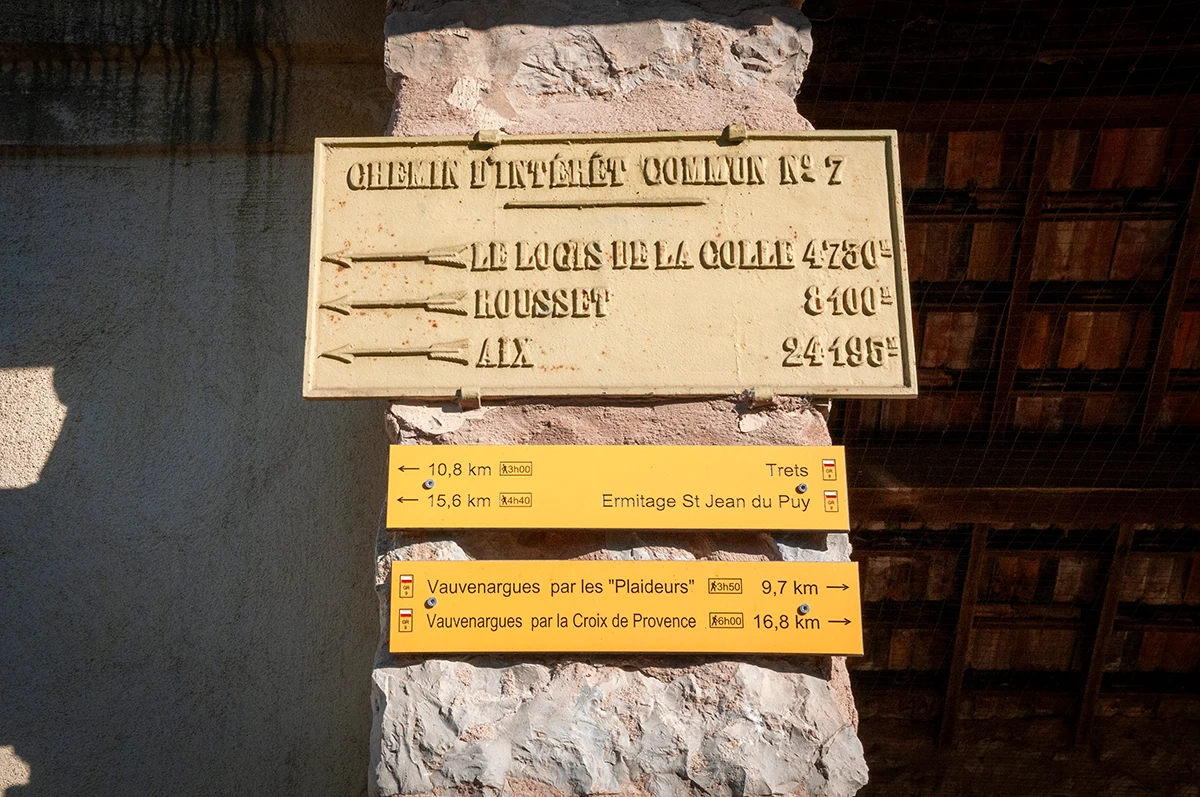 CHEMIN D'INTÉRÊT COMMUN Nº 7
LE LOGIS DE LA COLLE 4730M
ROUSSET 8100M
AIX 24195M
← 10,8 km 3h00 Trets GR 9
← 15,6 km 4h40 Ermitage St Jean du Puy GR 9
GR 9 Vauvenargues par les "Plaideurs" 3h50 9,7 km →
GR 9 Vauvenargues par la Croix de Provence 6h00 16,8 km →